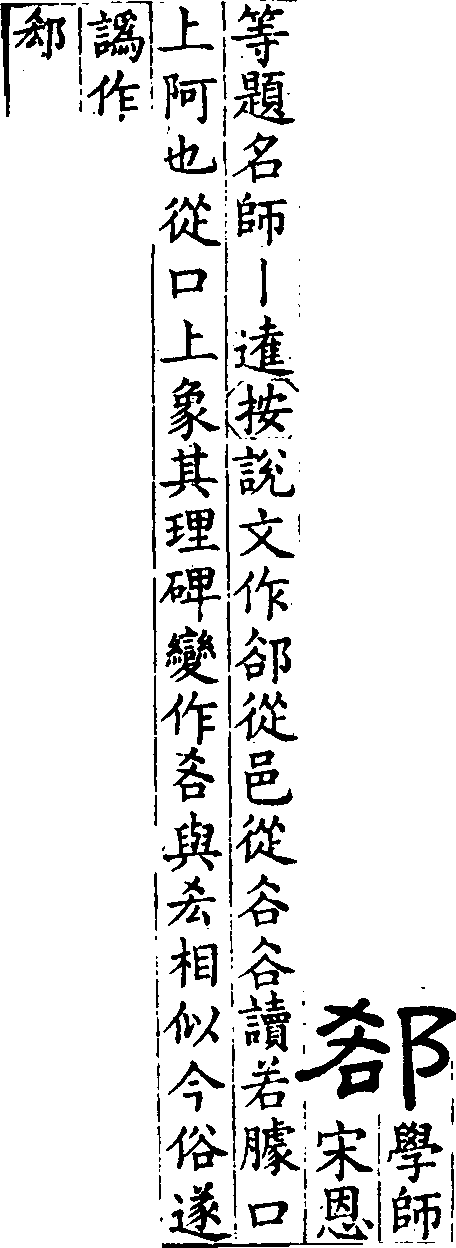 郤
學師
宋恩
等題名師丨按說文作郤從邑從谷谷讀若臄口
上阿也從口上象其理碑變作與相似今俗遂
譌作
郄